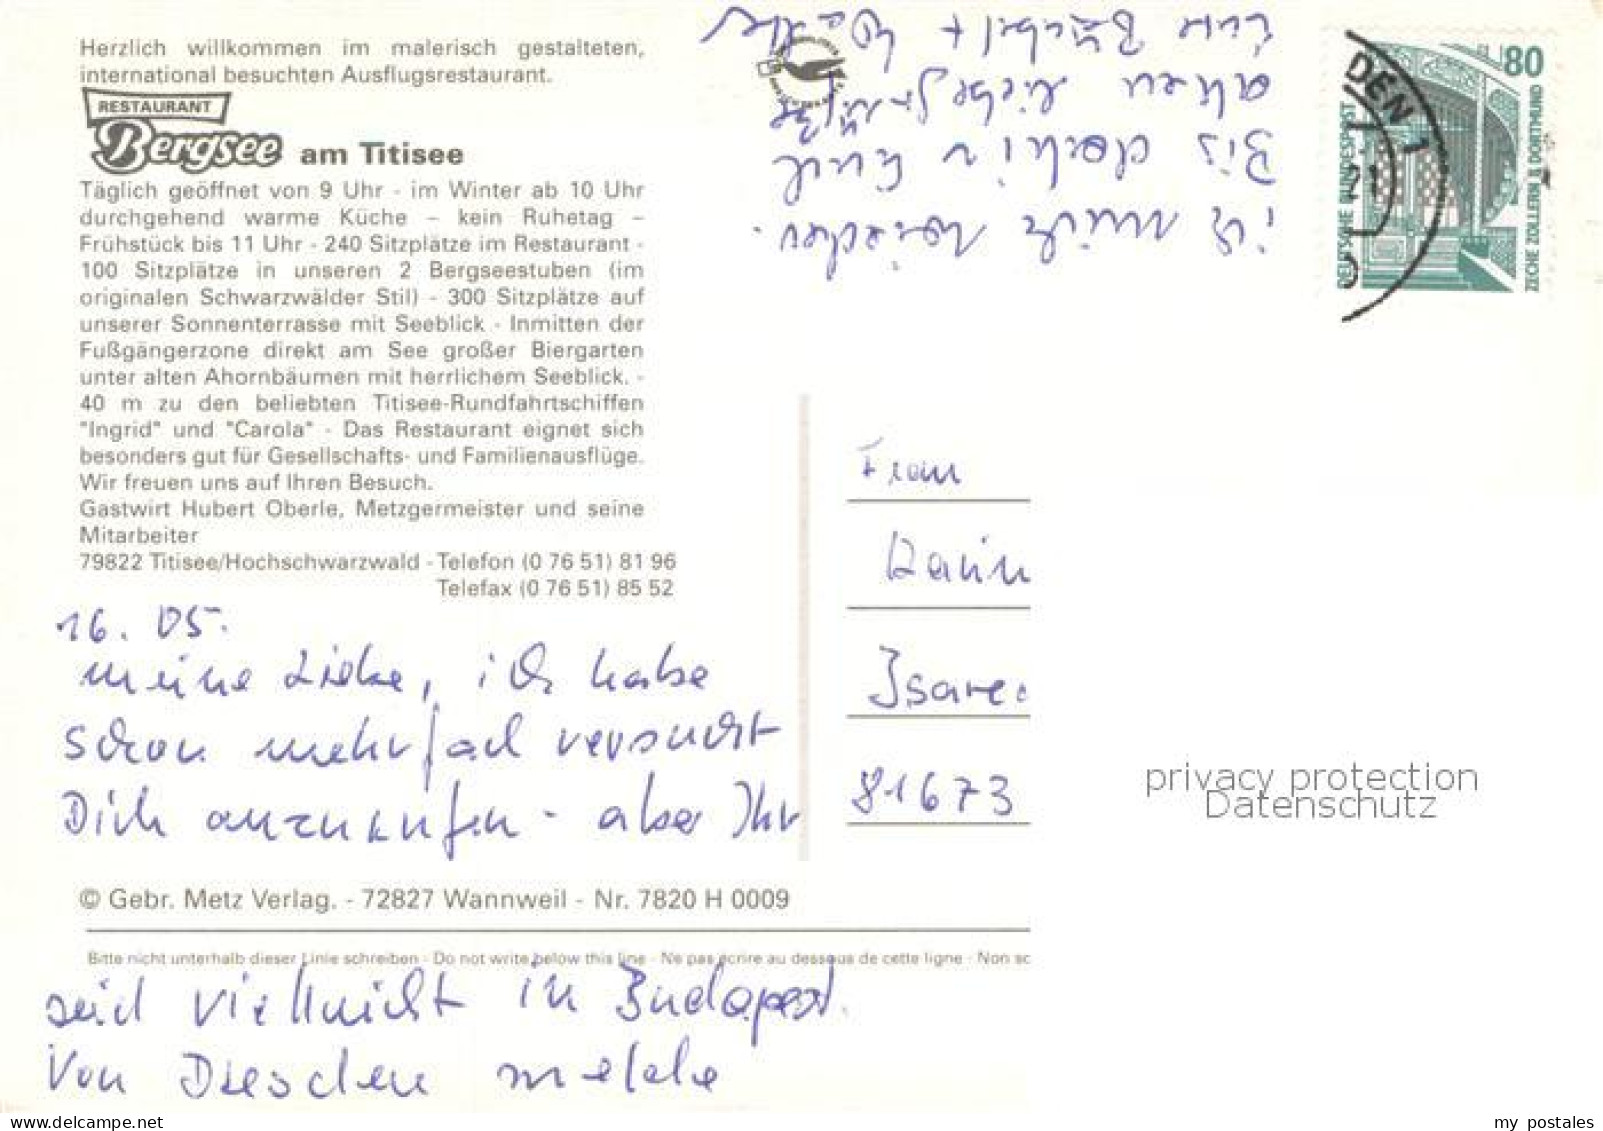 Herzlich willkommen im malerisch gestalteten,
international besuchten Ausflugsrestaurant.
RESTAURANT
Bergsee am Titisee
Täglich geöffnet von 9 Uhr - im Winter ab 10 Uhr
durchgehend warme Küche – kein Ruhetag –
Frühstück bis 11 Uhr - 240 Sitzplätze im Restaurant -
100 Sitzplätze in unseren 2 Bergseestuben (im
originalen Schwarzwälder Stil) - 300 Sitzplätze auf
unserer Sonnenterrasse mit Seeblick - Inmitten der
Fußgängerzone direkt am See großer Biergarten
unter alten Ahornbäumen mit herrlichem Seeblick. -
40 m zu den beliebten Titisee-Rundfahrtschiffen
"Ingrid" und "Carola" - Das Restaurant eignet sich
besonders gut für Gesellschafts- und Familienausflüge.
Wir freuen uns auf Ihren Besuch.
Gastwirt Hubert Oberle, Metzgermeister und seine
Mitarbeiter
79822 Titisee/Hochschwarzwald - Telefon (0 76 51) 81 96
Telefax (0 76 51) 85 52
16. 05.
meine Liebe, ich habe
schon mehrfach versucht
Dich anzurufen - aber Ihr
© Gebr. Metz Verlag. - 72827 Wannweil - Nr. 7820 H 0009
Bitte nicht unterhalb dieser Linie schreiben - Do not write below this line - Ne pas écrire au dessous de cette ligne - Non sc
seid vielleicht in Budapest.
Von Dresden melde
ich mich wieder.
Bis dahin Euch
allen liebe Grüße
Eure Bärbel +
80
DEUTSCHE BUNDESPOST
ZECHE ZOLLERN II, DORTMUND
DEN 1
21
Frau
Karin
Isare
81673
privacy protection
Datenschutz
my postales
www.delcampe.net